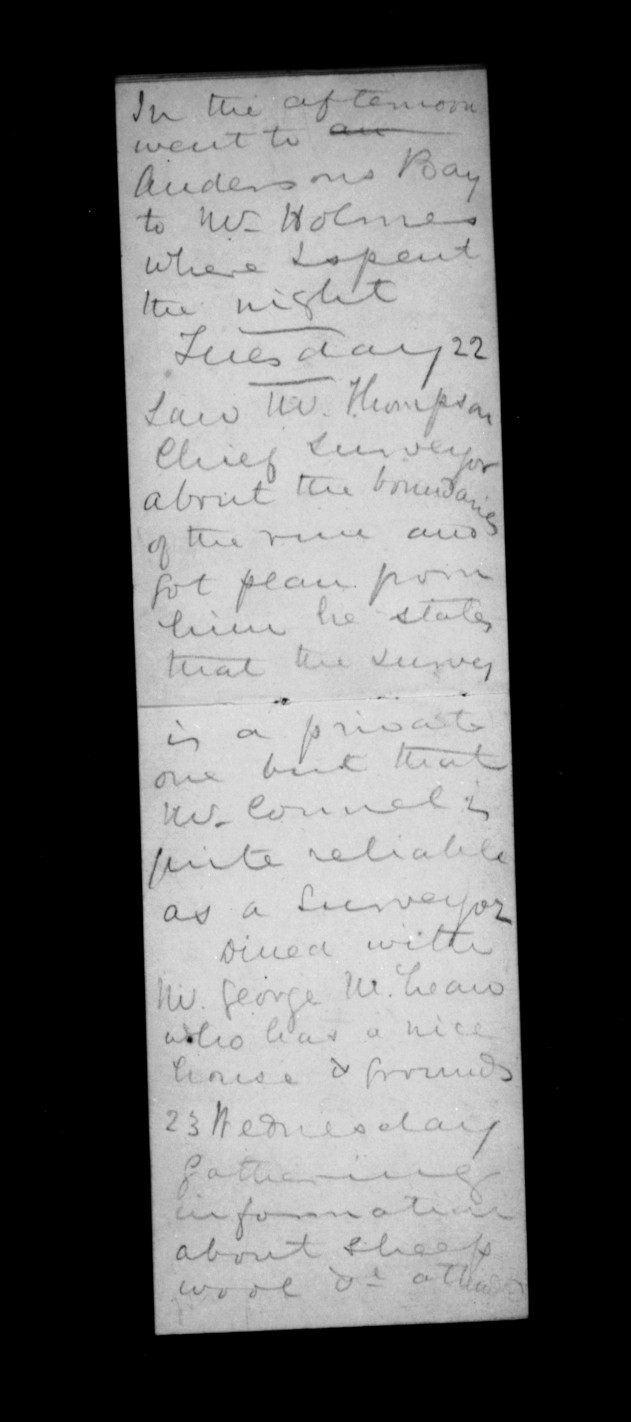 In the afternoon
went to an
Andersons Bay
to Mr Holmes
where I spent
the night
Tuesday 22
Saw Mr. Thompson
Chief Surveyor
about the boundaries
of the run and
got plan from
him he states
that the survey
is a private
one but that
Mr Connel is
quite reliable
as a Surveyor
Dined with
Mr. George McLean
who has a nice
house & grounds
23 Wednesday
gathering
information
about sheep
wool &c